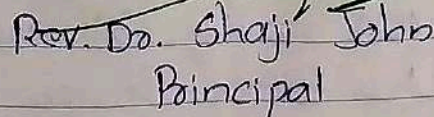 Rev. Dr. Shaji John
Principal